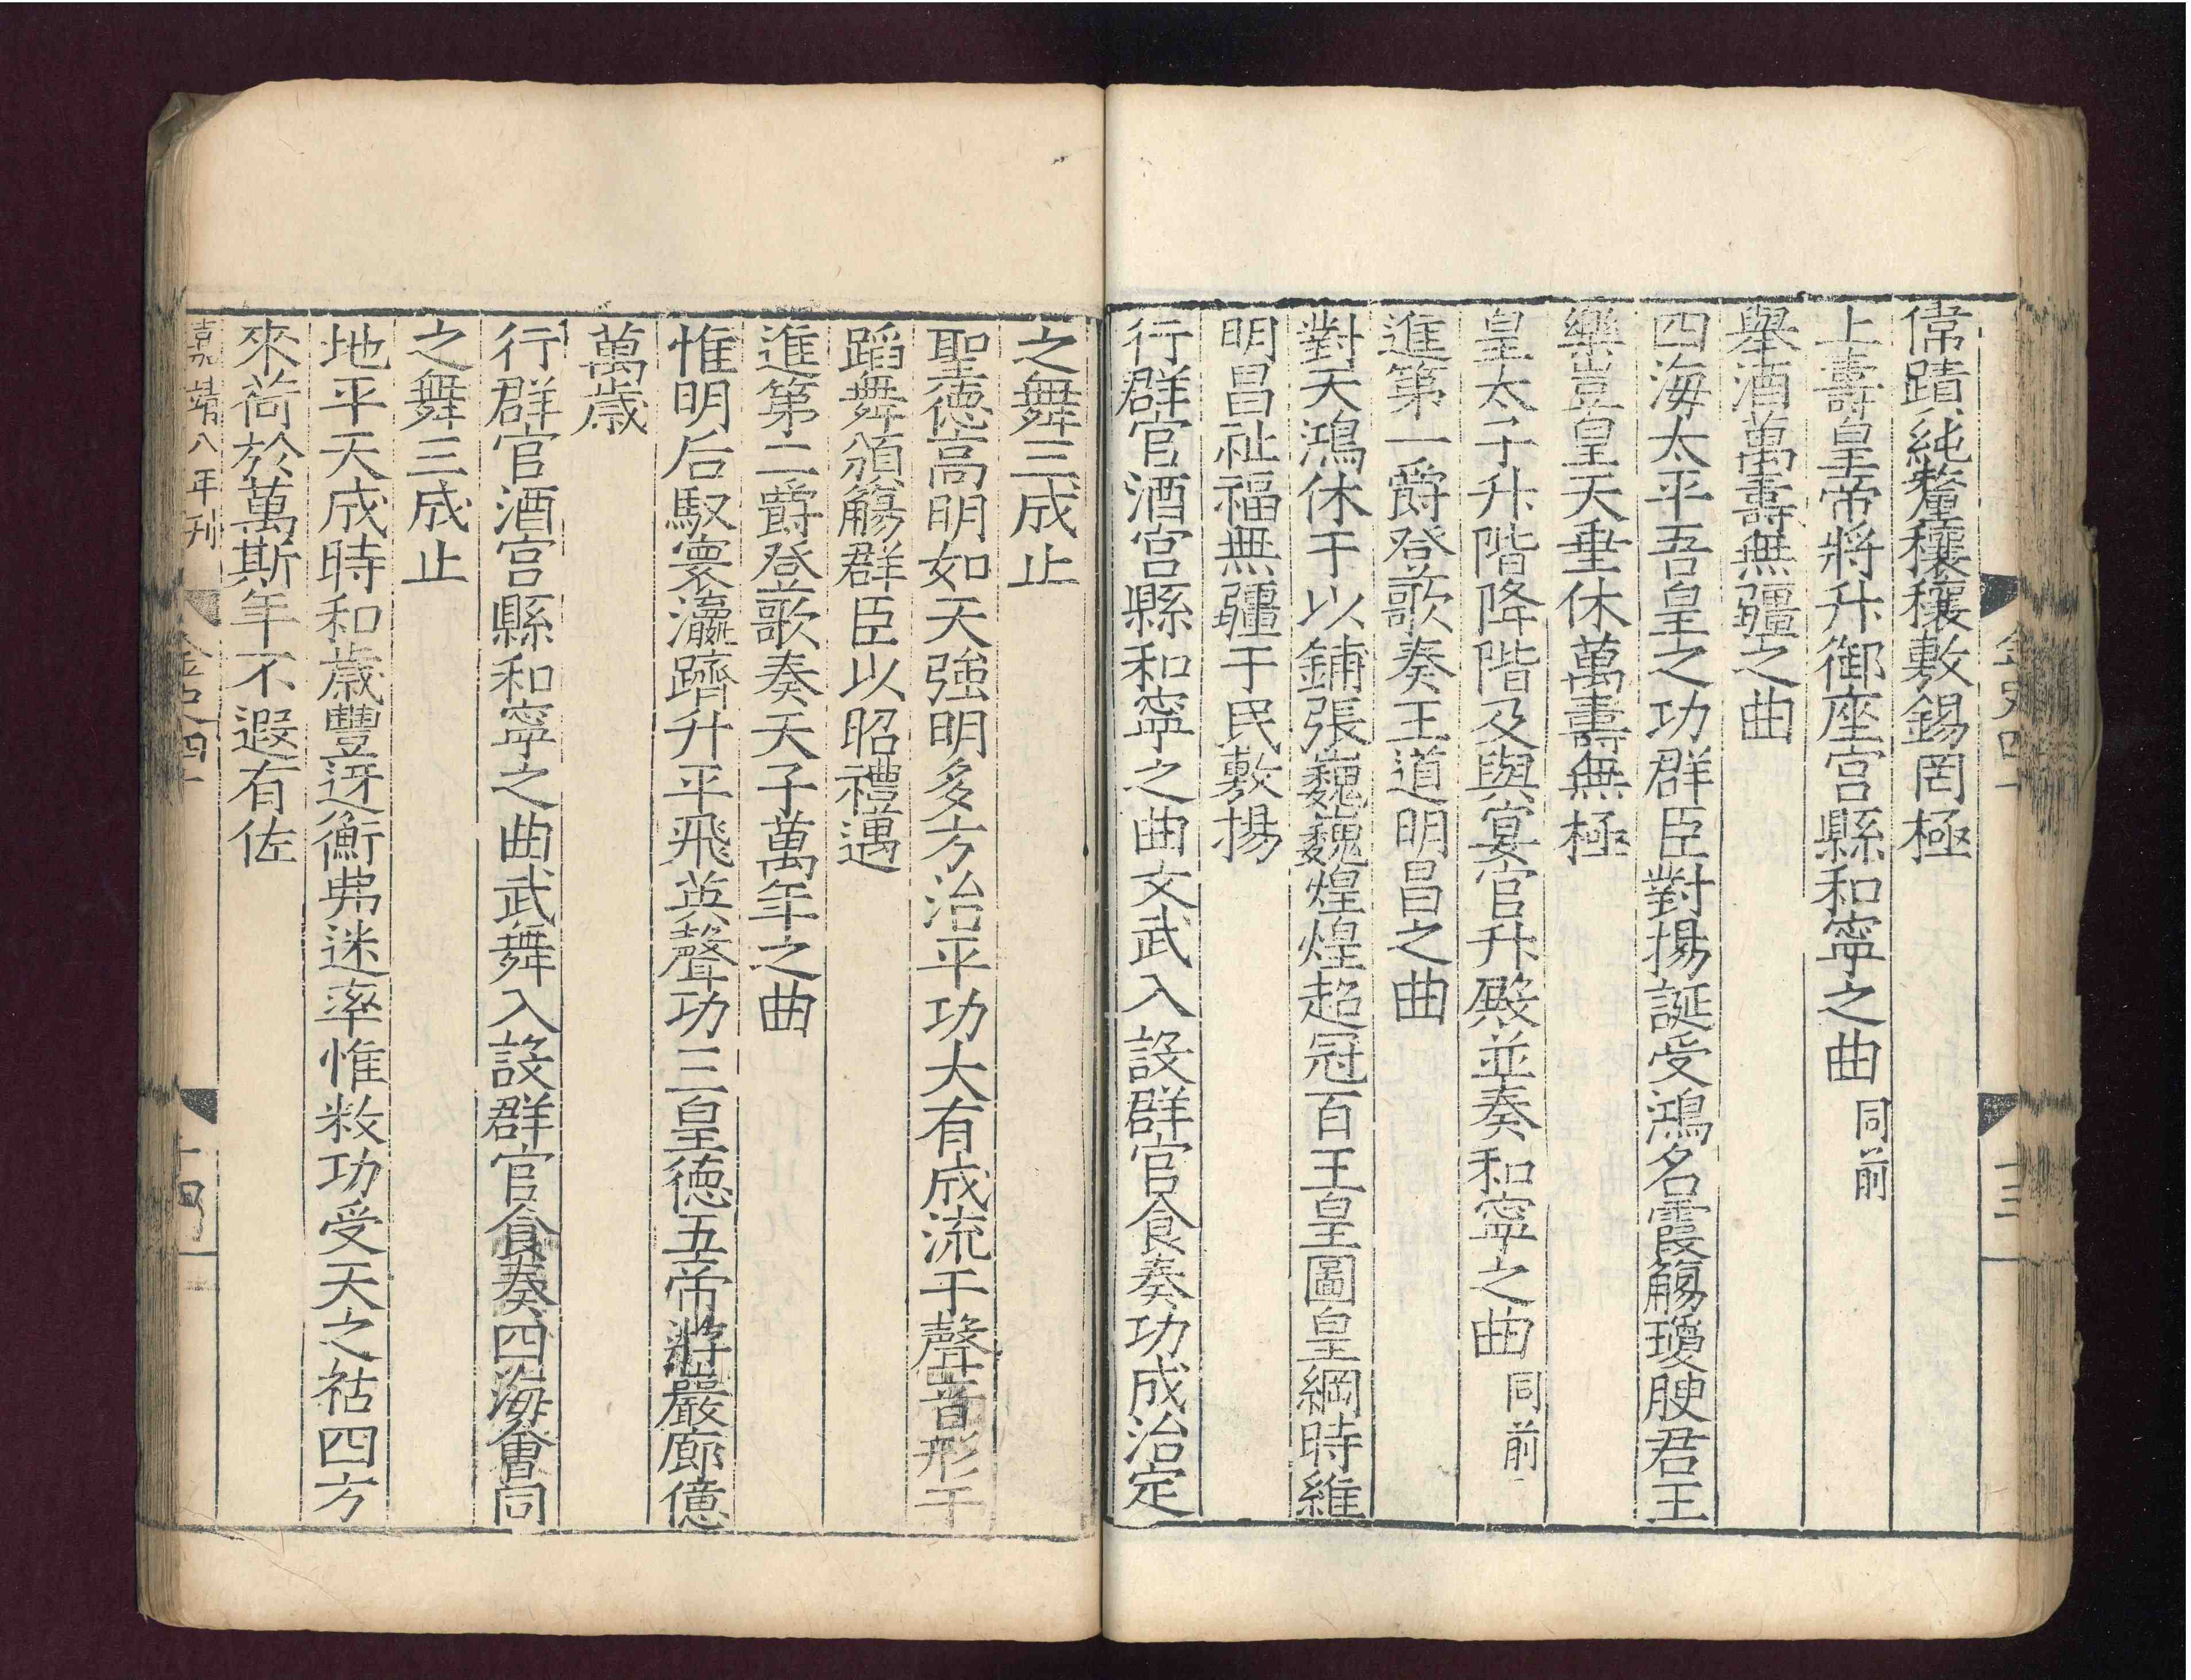 偉蹟純釐穰穰敷錫罔極
上壽皇帝將升御座宫縣和寧之曲同前
舉酒萬壽無疆之曲
四海太平吾皇之功群臣對揚誕受鴻名霞觴瓊腴君王
樂豈皇天垂休萬壽無極
皇太子升階降階及與宴官升殿並奏和寧之曲同前
進第一爵登歌奏王道明昌之曲
對天鴻休于以鋪張巍巍煌煌超冠百王皇圖皇綱時維
明昌祉福無疆于民敷揚
行群官酒宫縣和寧之曲文武入設群官食奏功成治定
之舞三成止
聖德高明如天強明多方治平功大有成流干聲音形干
蹈舞頒觴群臣以昭禮遇
進第二爵登歌奏天子萬年之曲
惟明后馭寰瀛躋升平飛英聲功三皇德五帝將巖廊億
萬歲
行群官酒宫縣和寧之曲武舞入設群官食奏四海會同
之舞三成止
地平天成時和歲豐迓衡弗迷率惟敉功受天之祜四方
來荷於萬斯年不遐有佐
嘉靖八年刊
金史四十
十四
金史四十
十三